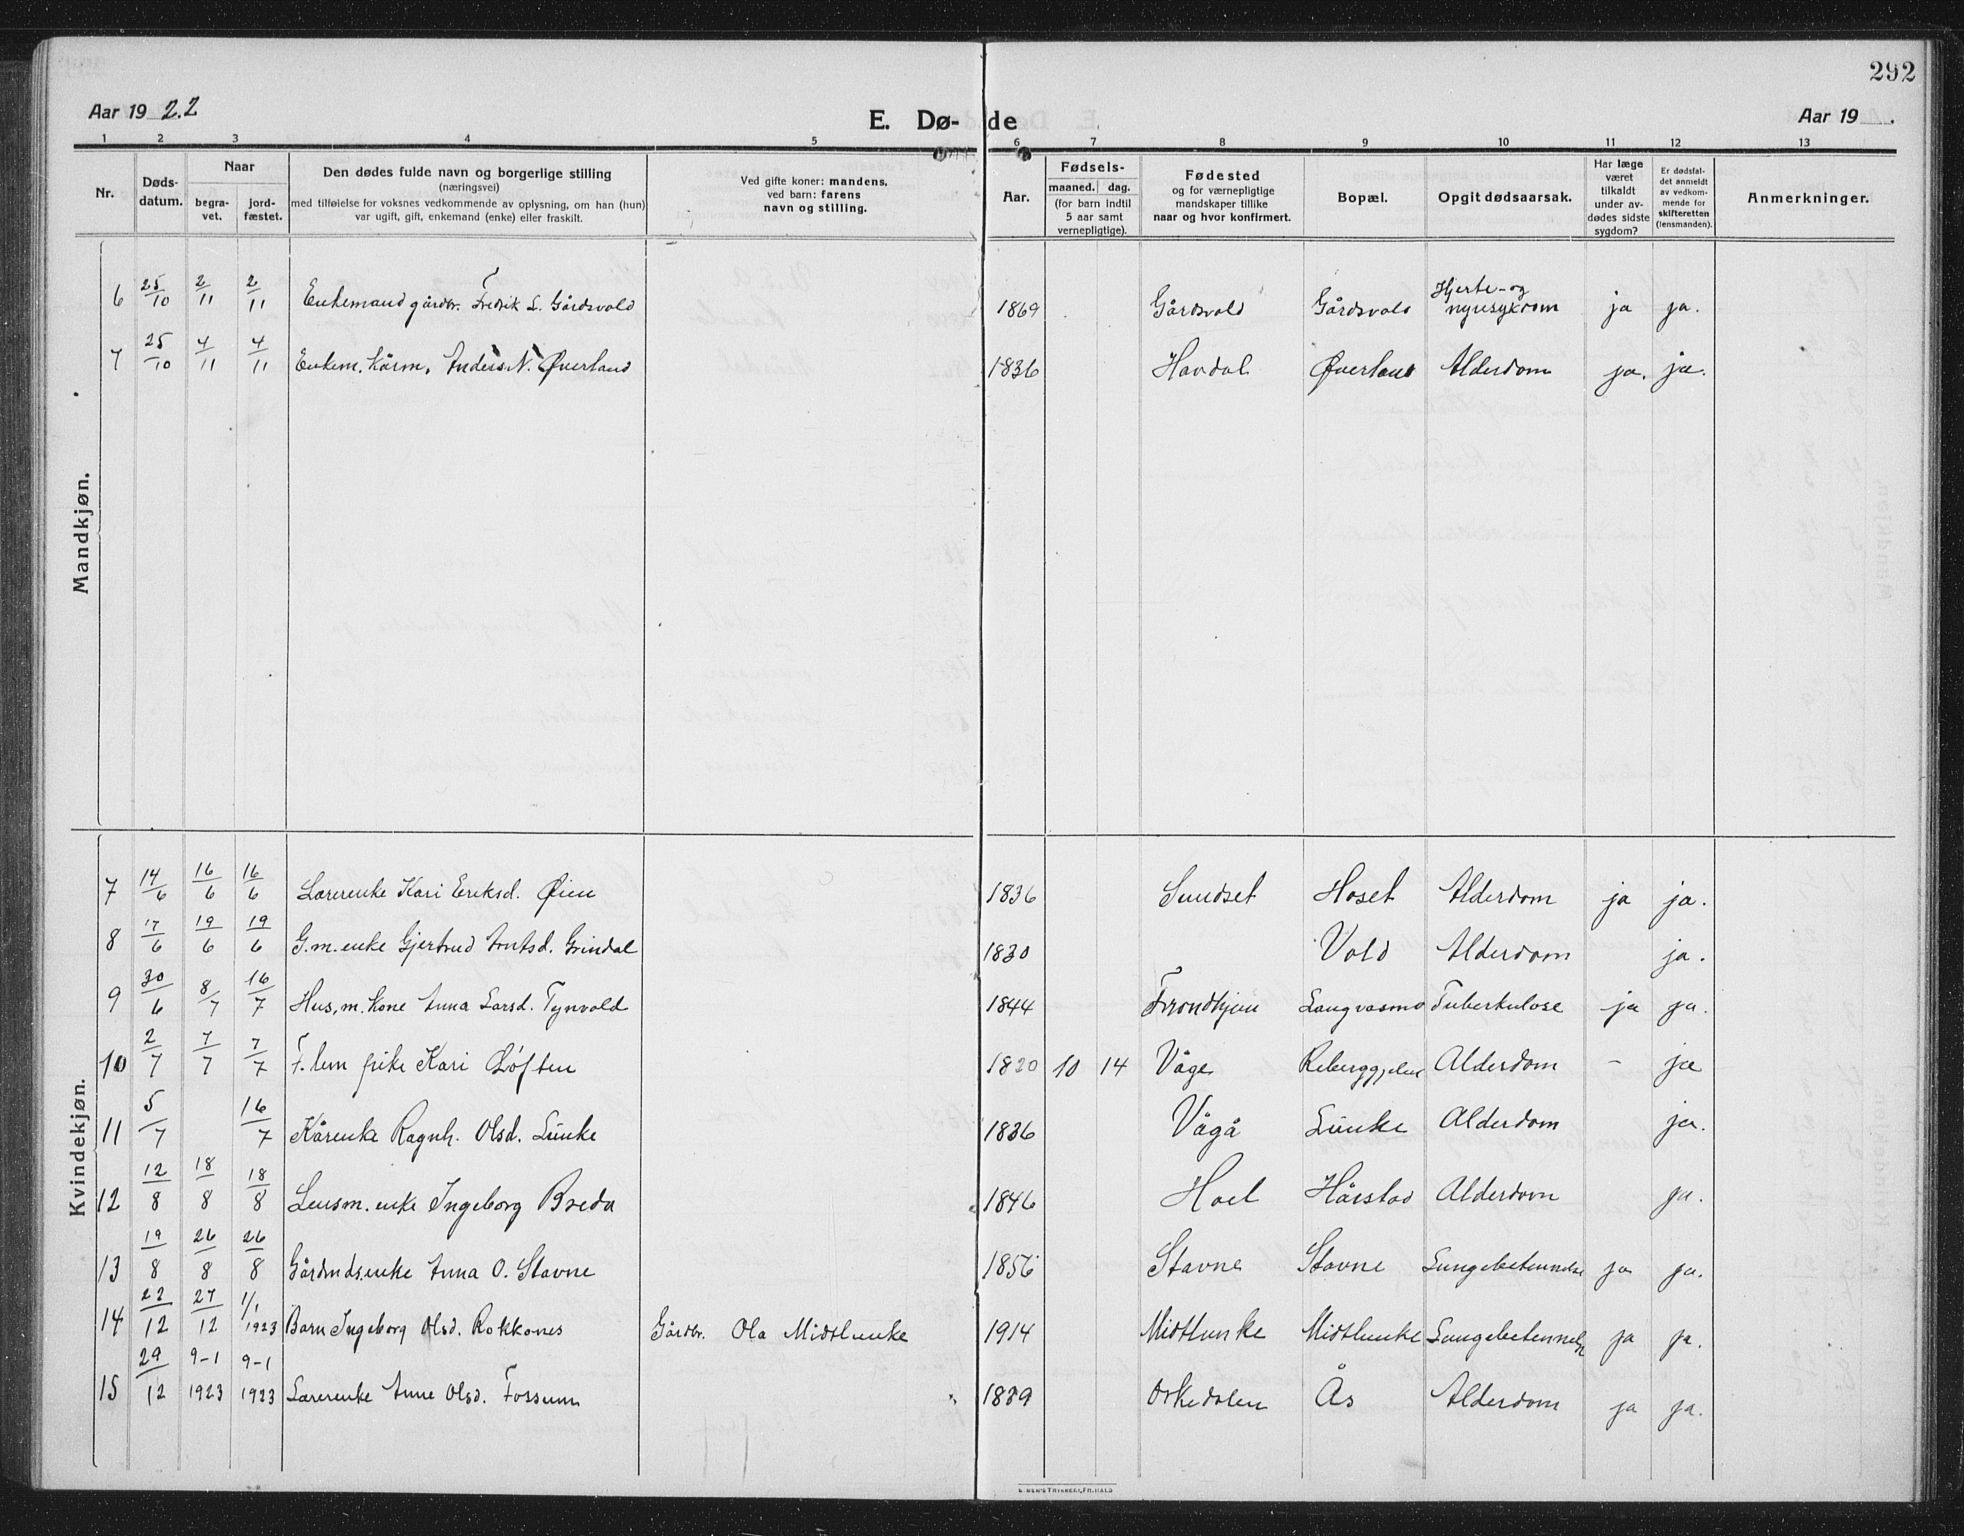 292
Aar 1922
E. Dø-de
Aar 19 .
1 2 3 4 5 6 7 8 9 10 11 12 13
Nr.
Døds-
datum.
Naar
begra-
vet.
jord-
fæstet.
Den dødes fulde navn og borgerlige stilling
(næringsvei)
med tilføielse for voksnes vedkommende av oplysning, om han (hun)
var ugift, gift, enkemand (enke) eller fraskilt.
Ved gifte koner: mandens,
ved barn: farens
navn og stilling.
Aar.
Fødsels-
maaned. dag.
(for barn indtil
5 aar samt
vernepligtige).
Fødested
og for værnepligtige
mandskaper tillike
naar og hvor konfirmert.
Bopæl.
Opgit dødsaarsak.
Har læge
været
tilkaldt
under av-
dødes sidste
sygdom?
Er dødsfal-
det anmeldt
av vedkom-
mende for
skifteretten
(lensmanden).
Anmerkninger.
Mandkjøn.
6 25/10 2/11 2/11 Enkemand gårdbr. Fredrik L. Gårdsvold 1869 Gårdsvold Gårdsvold Hjerte- og nyresykdom ja ja.
7 25/10 4/11 4/11 Enkem. kårm. Anders N. Øverland 1836 Havdal Øverland Alderdom ja. ja.
Kvindekjøn.
7 14/6 16/6 16/6 Lærerenke Kari Eriksd. Øien 1836 Sundset Hoset Alderdom ja ja.
8 17/6 19/6 19/6 G.m.enke Gjertrud Arntsd. Grindal 1830 Vold Alderdom ja.
9 30/6 8/7 16/7 Hus.m. kone Anna Larsd. Tynvold 1844 Trondhjem Langvasmo Tuberkulose ja ja.
10 2/7 7/7 7/7 F. lem Kari Løften 1820 10 14 Våge Alderdom - ja
11 5/7 16/7 Kårenke Ragnh. Olsd. Lunke 1836 Vågå Lunke Alderdom ja.
12 12/8 18/8 18/8 Lensm. enke Ingeborg Breda 1846 Hoel Hårstad Alderdom ja.
13 19/8 26/8 26/8 Gårdmds.enke Anna O. Stavne 1856 Stavne Stavne Lungebetennelse ja ja.
14 22/12 27/12 1/1 1923 Barn Ingeborg Olsd. Rokkones Gårdbr. Ola Midtlunke 1914 Midtlunke Midtlunke Lungebetennelse ja ja.
15 29/12 9-1 1923 9-1 1923 Lærerenke Anne Olsd. Fossum 1839 Orkedalen Ås Alderdom ja ja.